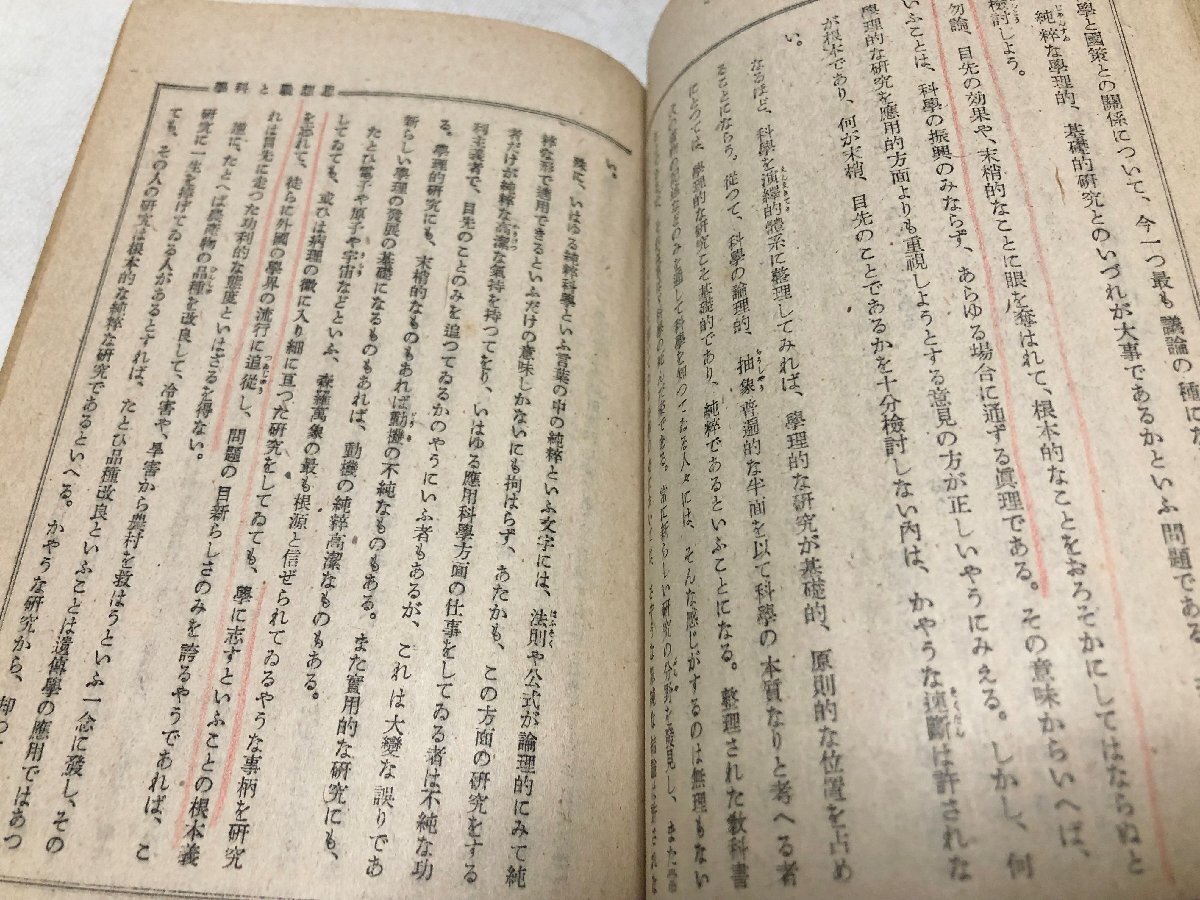 學と國策との關係について、今一つ最も議論の種にな
純粹な學理的、基礎的研究とのいづれが大事であるかといふ問題である
檢討しよう。
勿論、目先の効果や、末梢的なことに眼を奪はれて、根本的なことをおろそかにしてはならぬと
いふことは、科學の振興のみならず、あらゆる場合に通ずる眞理である。その意味からいへば、
學理的な研究を應用的方面よりも重視しようとする意見の方が正しいやうにみえる。しかし、何
が根本であり、何が末梢、目先のことであるかを十分檢討しない內は、かやうな速斷は許されな
い。
なるほど、科學を演繹的體系に整理してみれば、學理的な研究が基礎的、原則的な位置を占め
ることにならう。從つて、科學の論理的、抽象普遍的な半面を以て科學の本質なりと考へる者
にとつては、學理的な研究こそ基礎的であり、純粹であるといふことになる。整理された敎科書
のみを通して科學を知つてゐる人々には、そんな感じがするのは無理もない
常に新らしい研究の分野を發見し、また
思想戰と科學
い。
殊に、いはゆる純粹科學といふ言葉の中の純粹といふ文字には、法則や公式が論理的にみて純
粹な形で適用できるといふだけの意味しかないにも拘はらず、あたかも、この方面の硏究をする
者だけが純粹な高潔な氣持を持つてをり、いはゆる應用科學方面の仕事をしてゐる者は不純な功
利主義者で、目先のことのみを追つてゐるかのやうにいふ者もあるが、これは大變な誤りであ
る。學理的硏究にも、末梢的なものもあれば動機の不純なものもある。また實用的な硏究にも、
新らしい學理の發展の基礎になるものもあれば、動機の純粹高潔なものもある。
たとひ電子や原子や宇宙などといふ、森羅萬象の最も根源と信ぜられてゐるやうな事柄を硏究
してゐても、或ひは病理の微に入り細に亙つた硏究をしてゐても、學に志すといふことの根本義
を忘れて、徒らに外國の學界の流行に追從し、問題の目新らしさのみを誇るやうであれば、こ
れは目先に走つた功利的な態度といはざるを得ない。
逆に、たとへば農產物の品種を改良して、冷害や、旱害から農村を救はうといふ一念に發し、その
硏究に一生を捧げてゐる人があるとすれば、たとひ品種改良といふことは遺傳學の應用ではあつ
ても、その人の硏究は根本的な純粹な硏究であるといへる。かやうな硏究から、却つ